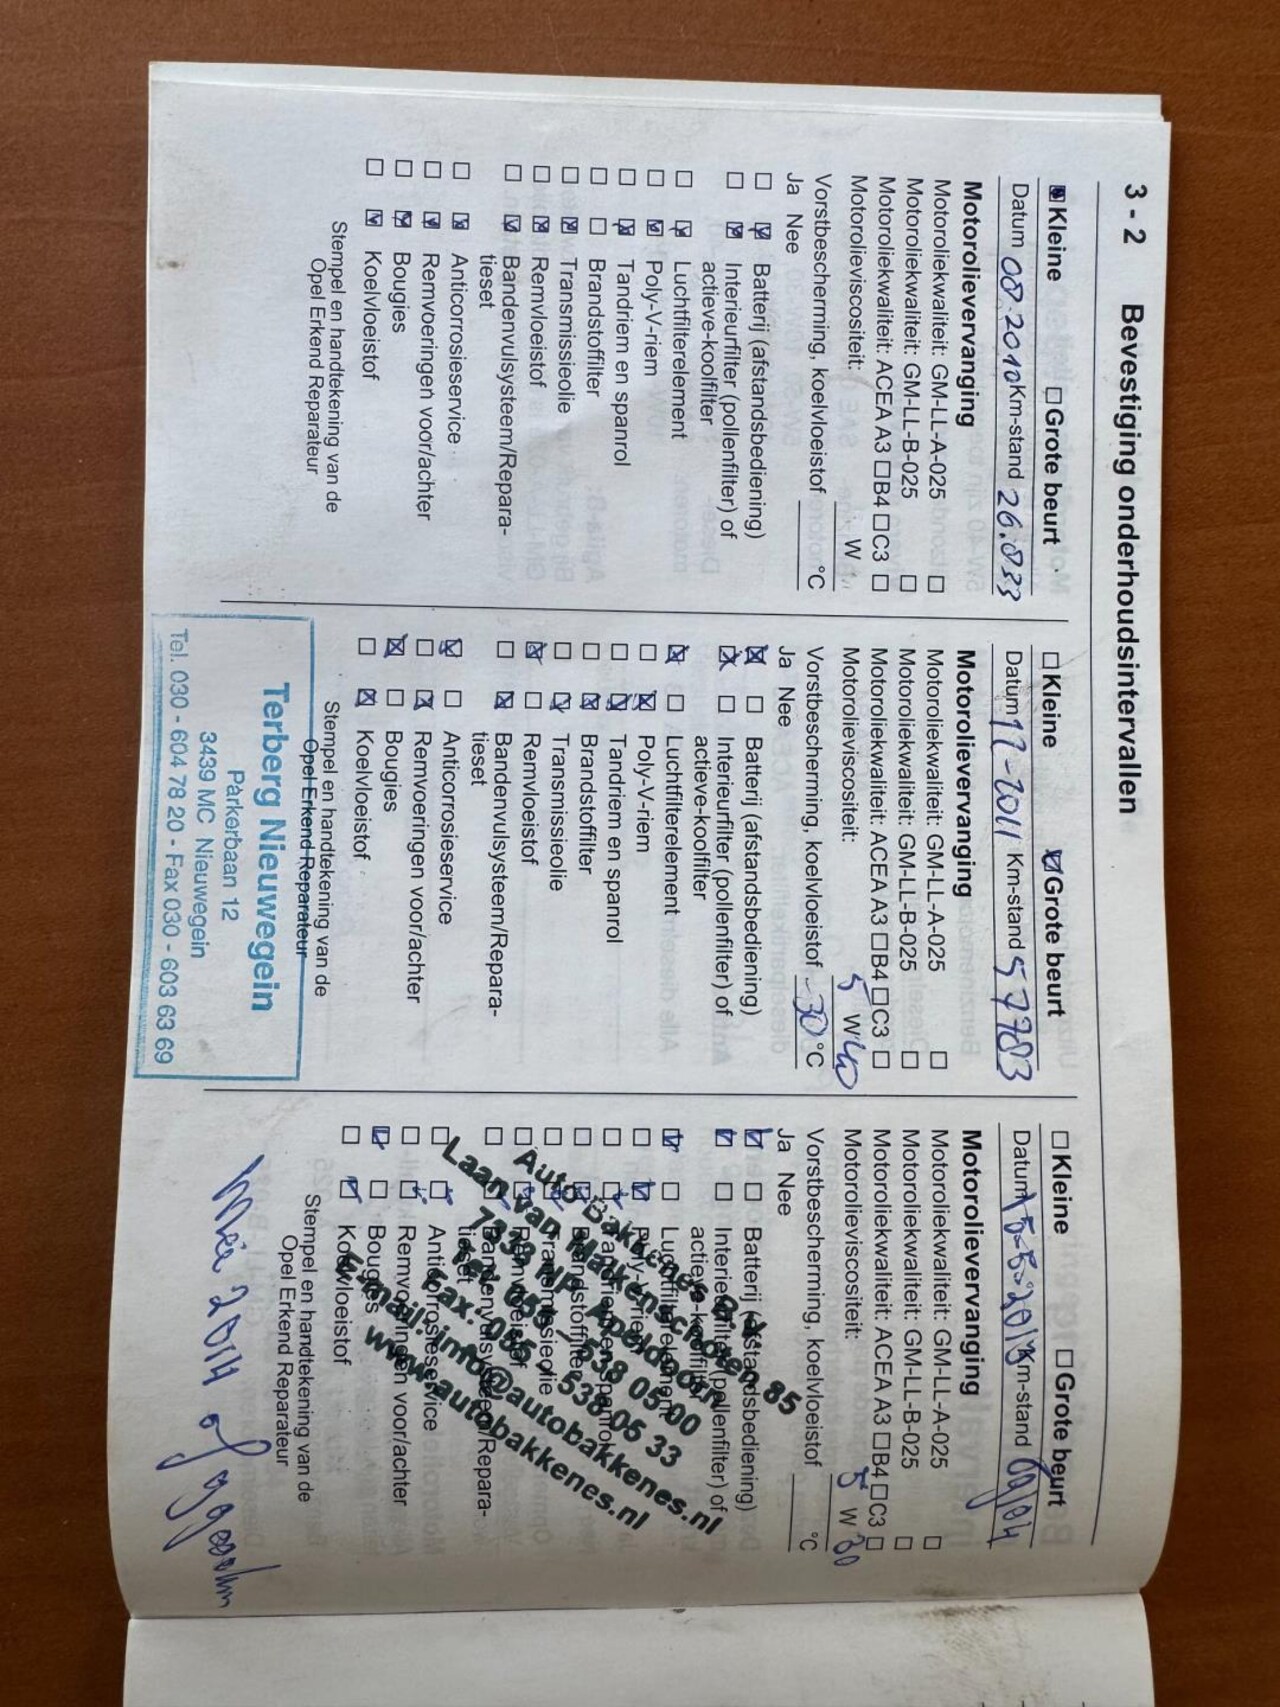 3 - 2 Bevestiging onderhoudsintervallen
Kleine Grote beurt
Datum 08.2010 Km-stand 26.833
Motorolievervanging
Motoroliekwaliteit: GM-LL-A-025
Motoroliekwaliteit: GM-LL-B-025
Motoroliekwaliteit: ACEA A3 B4 C3
Motorolieviscositeit: W
Vorstbescherming, koelvloeistof °C
Ja Nee
Batterij (afstandsbediening)
Interieurfilter (pollenfilter) of
actieve-koolfilter
Luchtfilterelement
Poly-V-riem
Tandriem en spanrol
Brandstoffilter
Transmissieolie
Remvloeistof
Bandenvulsysteem/Repara-
tieset
Anticorrosieservice
Remvoeringen voor/achter
Bougies
Koelvloeistof
Stempel en handtekening van de
Opel Erkend Reparateur
Kleine Grote beurt
Datum 11-2011 Km-stand 57783
Motorolievervanging
Motoroliekwaliteit: GM-LL-A-025
Motoroliekwaliteit: GM-LL-B-025
Motoroliekwaliteit: ACEA A3 B4 C3
Motorolieviscositeit: 5 W 40
Vorstbescherming, koelvloeistof -30 °C
Ja Nee
Batterij (afstandsbediening)
Interieurfilter (pollenfilter) of
actieve-koolfilter
Luchtfilterelement
Poly-V-riem
Tandriem en spanrol
Brandstoffilter
Transmissieolie
Remvloeistof
Bandenvulsysteem/Repara-
tieset
Anticorrosieservice
Remvoeringen voor/achter
Bougies
Koelvloeistof
Stempel en handtekening van de
Opel Erkend Reparateur
Terberg Nieuwegein
Parkerbaan 12
3439 MC Nieuwegein
Tel. 030 - 604 78 20 - Fax 030 - 603 63 69
Kleine Grote beurt
Datum 15-5-2013 Km-stand
Motorolievervanging
Motoroliekwaliteit: GM-LL-A-025
Motoroliekwaliteit: GM-LL-B-025
Motoroliekwaliteit: ACEA A3 B4 C3
Motorolieviscositeit: 5 W 30
Vorstbescherming, koelvloeistof °C
Ja Nee
Batterij (afstandsbediening)
Interieurfilter (pollenfilter) of
actieve-koolfilter
Luchtfilterelement
Poly-V-riem
Tandriem en spanrol
Brandstoffilter
Transmissieolie
Remvloeistof
Bandenvulsysteem/Repara-
tieset
Anticorrosieservice
Remvoeringen voor/achter
Bougies
Koelvloeistof
Stempel en handtekening van de
Opel Erkend Reparateur
Auto Bakkenes B.V.
Laan van Malkenschoten 85
7333 NP Apeldoorn
Tel. 055 - 538 05 00
Fax. 055 - 538 05 33
E-mail: info@autobakkenes.nl
www.autobakkenes.nl
Mei 2014